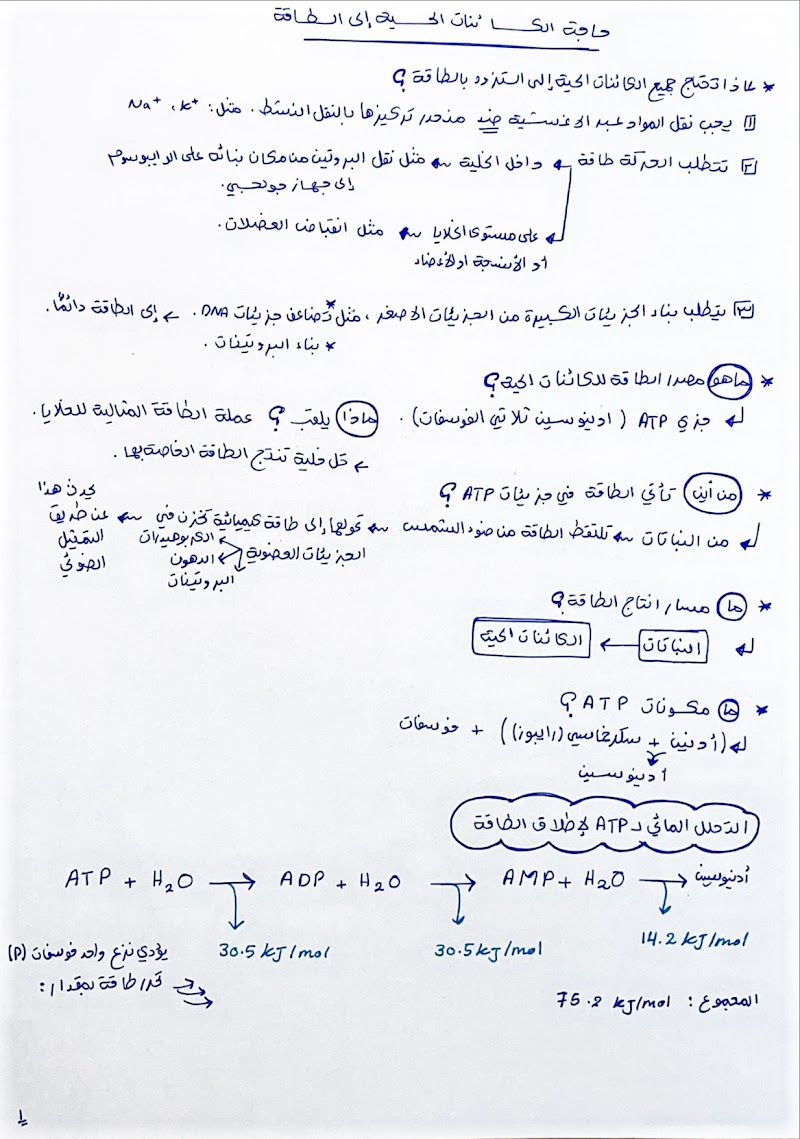 حاجة الكائنات الحية إلى الطاقة
* لماذا تحتاج جميع الكائنات الحية إلى التزود بالطاقة ؟
١ يجب نقل المواد عبر الاغشية ضد منحدر تركيزها بالنقل النشط . مثل : K+ ، Na+
٢ تتطلب الحركة طاقة ← داخل الخلية ← مثل نقل البروتين من مكان بنائه على الرايبوسوم
إلى جهاز جولجي .
← على مستوى الخلايا ← مثل انقباض العضلات .
أو الأنسجة او الأعضاء
٣ يتطلب بناء الجزيئات الكبيرة من الجزيئات الاصغر ، مثل * تضاعف جزيئات DNA . ← إلى الطاقة دائمًا .
* بناء البروتينات .
* ماهو مصدر الطاقة للكائنات الحية ؟
↲ جزيء ATP ( ادينوسين ثلاثي الفوسفات ) . ماذا يلقب ؟ عملة الطاقة المثالية للخلايا .
← كل خلية تنتج الطاقة الخاصة بها .
* من أين تأتي الطاقة في جزيئات ATP ؟
↲ من النباتات ← تلتقط الطاقة من ضوء الشمس ← تحولها إلى طاقة كيميائية تخزن في ← يحدث هذا عن طريق التمثيل الضوئي
الجزيئات العضوية ← الكربوهيدرات
← الدهون
← البروتينات
* ما مسار انتاج الطاقة ؟
↲ النباتات ← الكائنات الحية
* ما مكونات ATP ؟
↲ (أدنين + سكر خماسي (رايبوز)) + فوسفات
أدينوسين
التحلل المائي لـ ATP لإطلاق الطاقة
ATP + H₂O → ADP + H₂O → AMP + H₂O → أدينوسين
30.5 kJ/mol 30.5 kJ/mol 14.2 kJ/mol
يؤدي نزع واحد فوسفات (P)
تحرر طاقة بمقدار :
المجموع : 75.2 kJ/mol
١